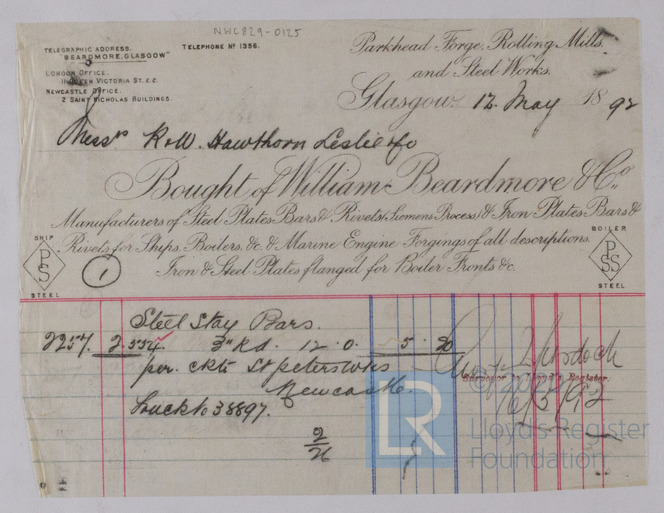 NWC829-0125
TELEGRAPHIC ADDRESS.
"BEARDMORE, GLASGOW"
TELEPHONE No 1356.
LONDON OFFICE.
11 QUEEN VICTORIA ST. E.C.
NEWCASTLE OFFICE.
2 SAINT NICHOLAS BUILDINGS.
Parkhead Forge, Rolling Mills,
and Steel Works.
Glasgow. 12 May 1892
Messrs R & W. Hawthorn Leslie & Co
Bought of William Beardmore & Co.,
Manufacturers of Steel Plates Bars & Rivets (Siemens Process) & Iron Plates Bars &
Rivets for Ships, Boilers, &c. & Marine Engine Forgings of all descriptions.
Iron & Steel Plates flanged for Boiler Fronts &c.
SHIP
PS
STEEL
BOILER
PSS
STEEL
1
Steel Stay Bars.
2254 2 3" Rd. 12.0. 5
per. ckts St peters wks
Newcastle.
Truck No 38897.
2
26
Murdoch
Surveyor Lloyd's Register.
16/5/92
LR
Lloyd's Register
Foundation